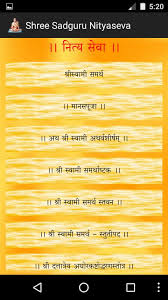 5:20
Shree Sadguru Nityaseva
।। नित्य सेवा ।।
श्रीस्वामी समर्थ
।। मानसपूजा ।।
।। अथ श्री अथर्वशीर्षम् ।।
।। श्री स्वामी समर्थाष्टक ।।
।। श्री स्वामी समर्थ स्तवन ।।
।। श्री स्वामी समर्थ - स्तुतीपद ।।
।। श्री दत्तात्रेय अघोरकष्टोद्धरणस्तोत्र ।।